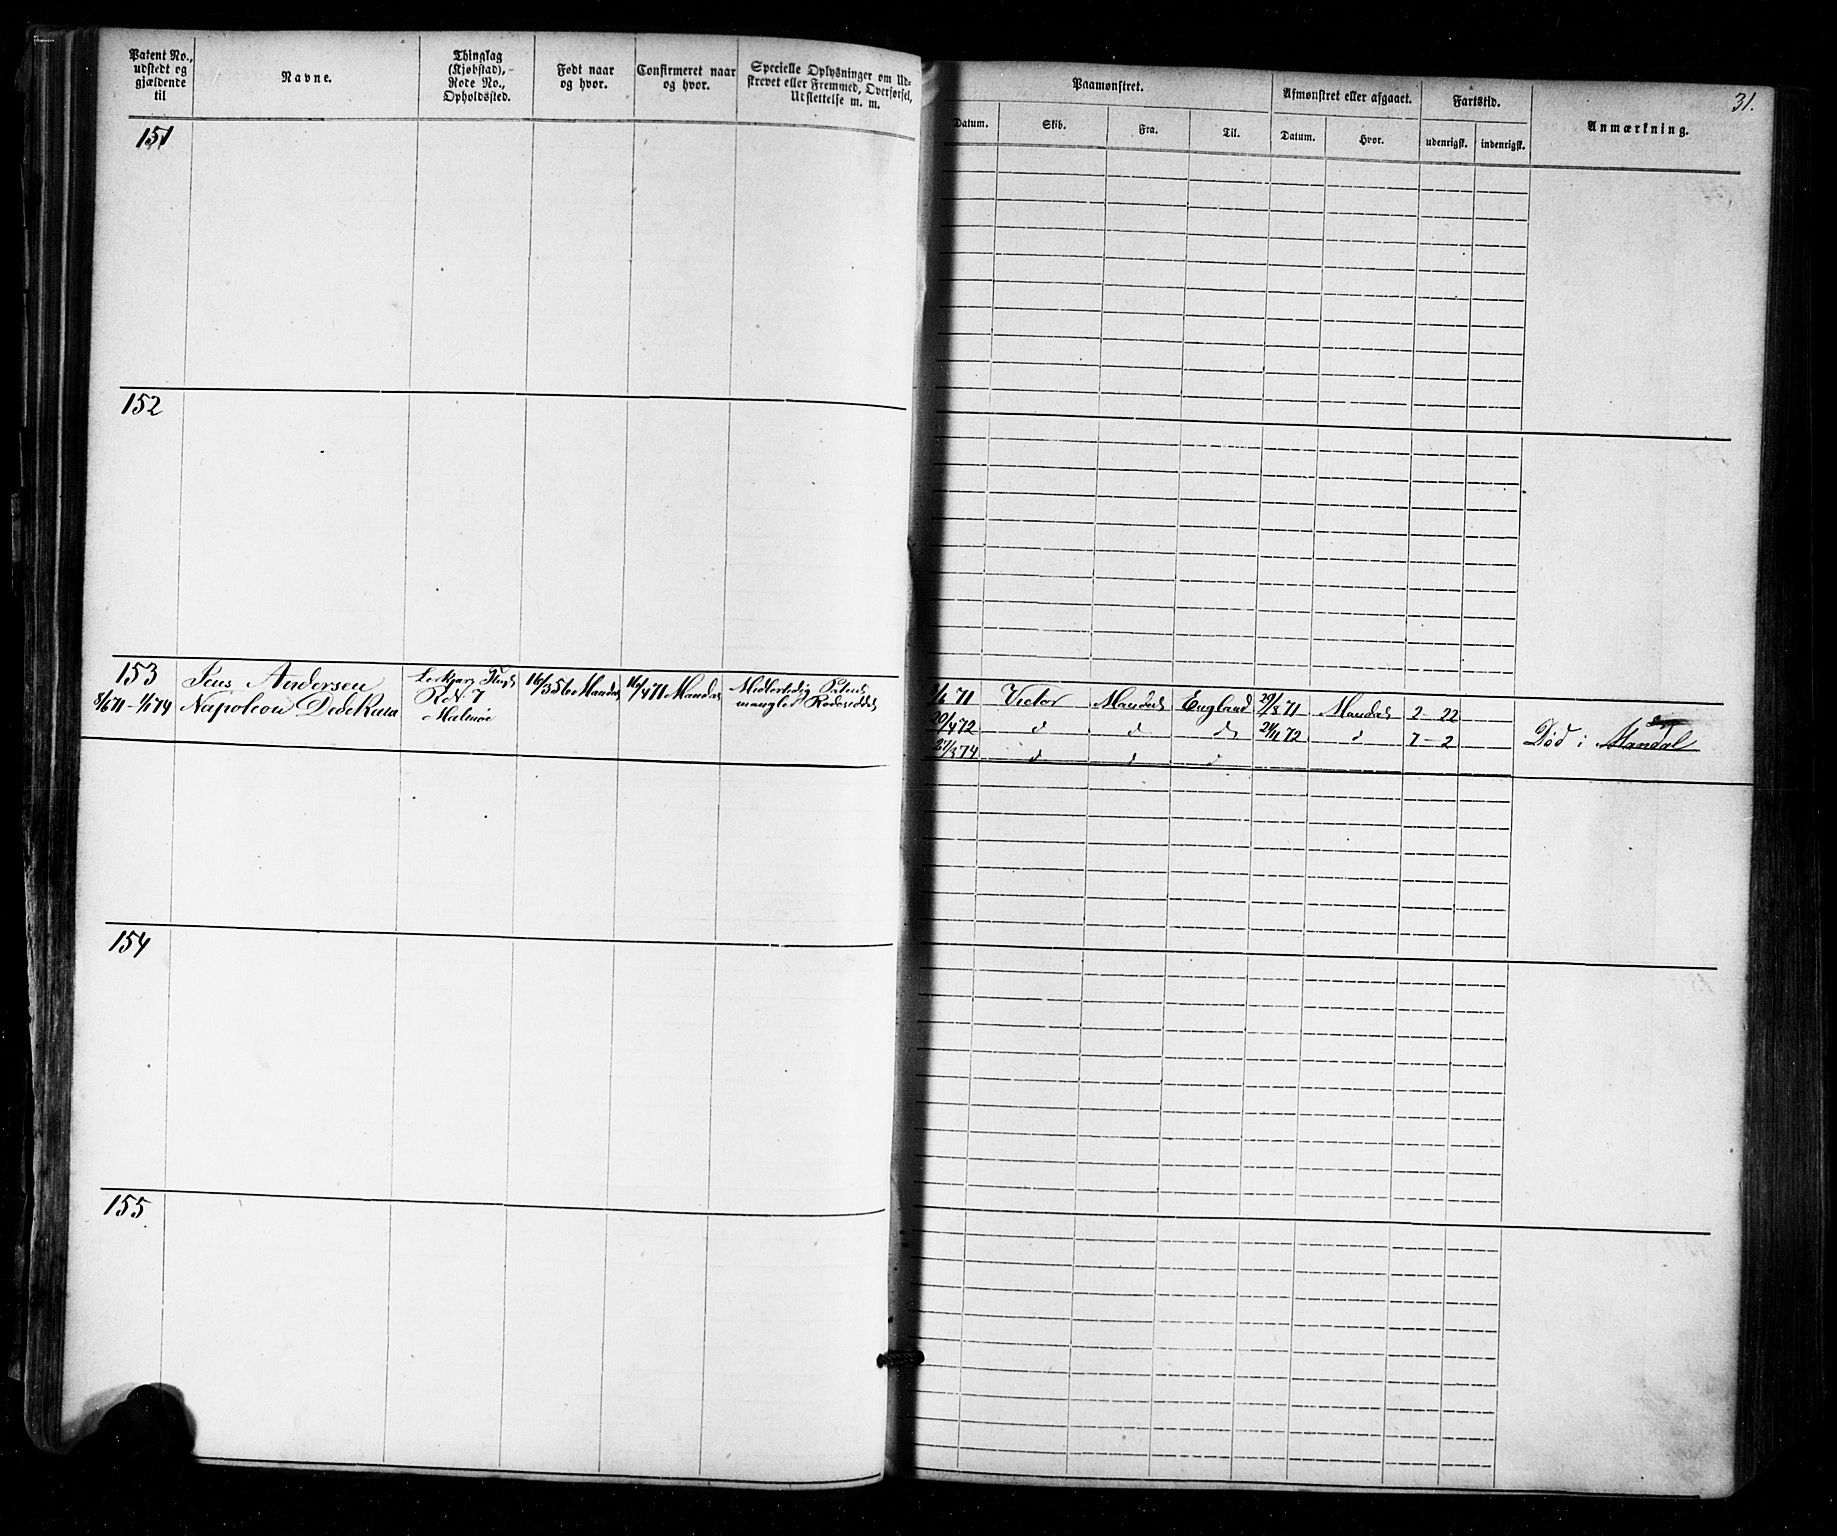 Patent No.,
udstedt og
gjældende
til
Navne.
Thinglag
(Kjøbstad),
Rode No.,
Opholdssted.
Født naar
og hvor.
Confirmeret naar
og hvor.
Specielle Oplysninger om Ud-
skrevet eller Fremmed, Overførsel,
Udslettelse m. m.
Paamønstret.
Afmønstret eller afgaaet.
Fartstid.
31.
Datum.
Skib.
Fra.
Til.
Datum.
Hvor.
udenrigsk.
indenrigsk.
Anmærkning.
151
152
153
8/6 71 - 1/1 74
Jens Andersen
Napoleon Dedekam
R. N. 7
Malmøe
16/3 56 Mandal
16/4 71 Mandal
Midlertidig Patent
mangler Rodeseddel
8/6 71 Victor Mandal England 29/8 71 Mandal 2 - 22
20/4 72 d d d 24/11 72 d 7 - 2
27/3 74 d d d
Død i Mandal
154
155